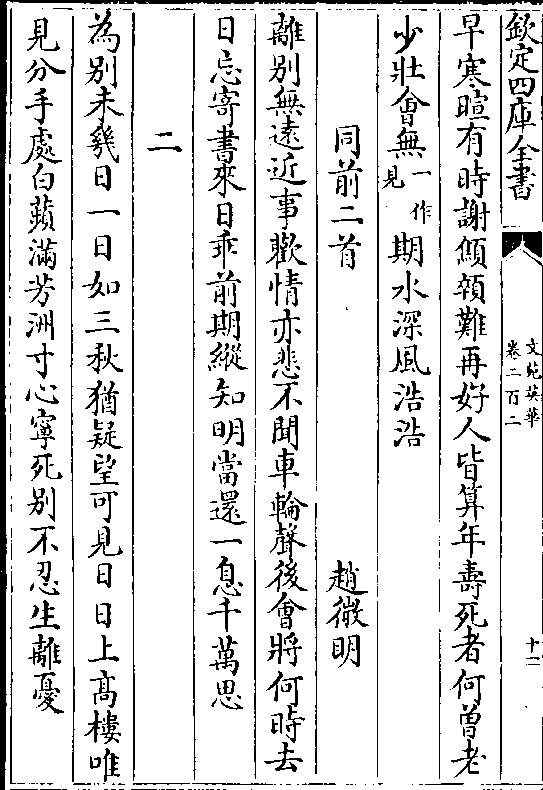 欽定四庫全書
文苑英華
卷二百二
十一
早寒暄有時謝顦顇難再好人皆算年壽死者何曾老
少壯會無一作見期水深風浩浩
同前二首　趙微明
離別無遠近事歡情亦悲不聞車輪聲後會將何時去
日忘寄書來日乖前期縱知明當還一息千萬思
二
為别未幾日一日如三秋猶疑望可見日日上髙樓唯
見分手處白蘋滿芳洲寸心寧死别不忍生離憂